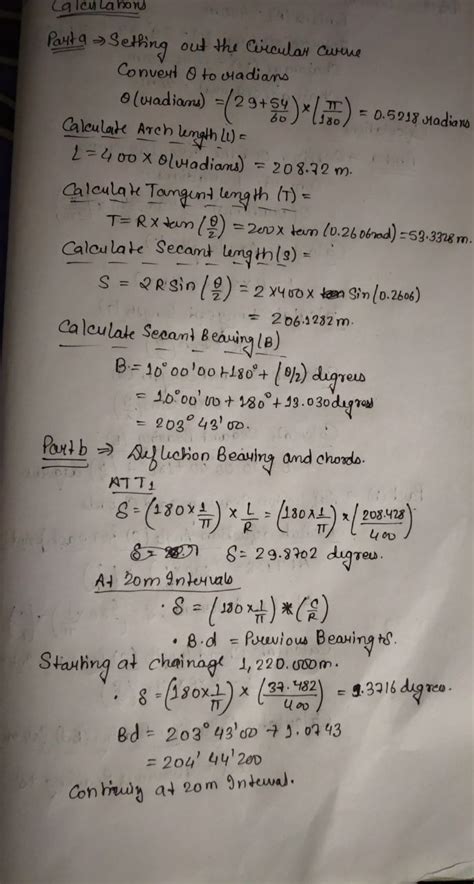 Calculations
Part a ⇒ Setting out the Circular Curve
Convert θ to radians
θ(radians) = (29+54/60) × (π/180) = 0.5218 radians
Calculate Arch length(l) =
L = 400 × θ(radians) = 208.72 m.
Calculate Tangent length (T) =
T = R × tan (θ/2) = 200 × tan (0.2606rad) = 53.3328 m.
Calculate Secant Length(s) =
S = 2R Sin (θ/2) = 2 × 400 × Sin (0.2606)
= 206.1282 m.
Calculate Secant Bearing (B)
B = 10° 00' 00 + 180° + (θ/2) degrees
= 10° 00' 00 + 180° + 13.030 degrees
= 203° 43' 00.
Part b ⇒ Deflection Bearing and chords.
AT T1
δ = (180 × 1/π) × L/R = (180 × 1/π) × (208.428/400)
δ = 29.8702 degrees.
At 20m Intervals
• δ = (180 × 1/π) * (C/R)
• B.d = Previous Bearing + δ.
Starting at chainage 1,220.000m.
• δ = (180 × 1/π) × (37.482/400) = 5.3716 degree.
Bd = 203° 43' 00 + 1.0743
= 204' 44' 200
Continuing at 20m Interval.